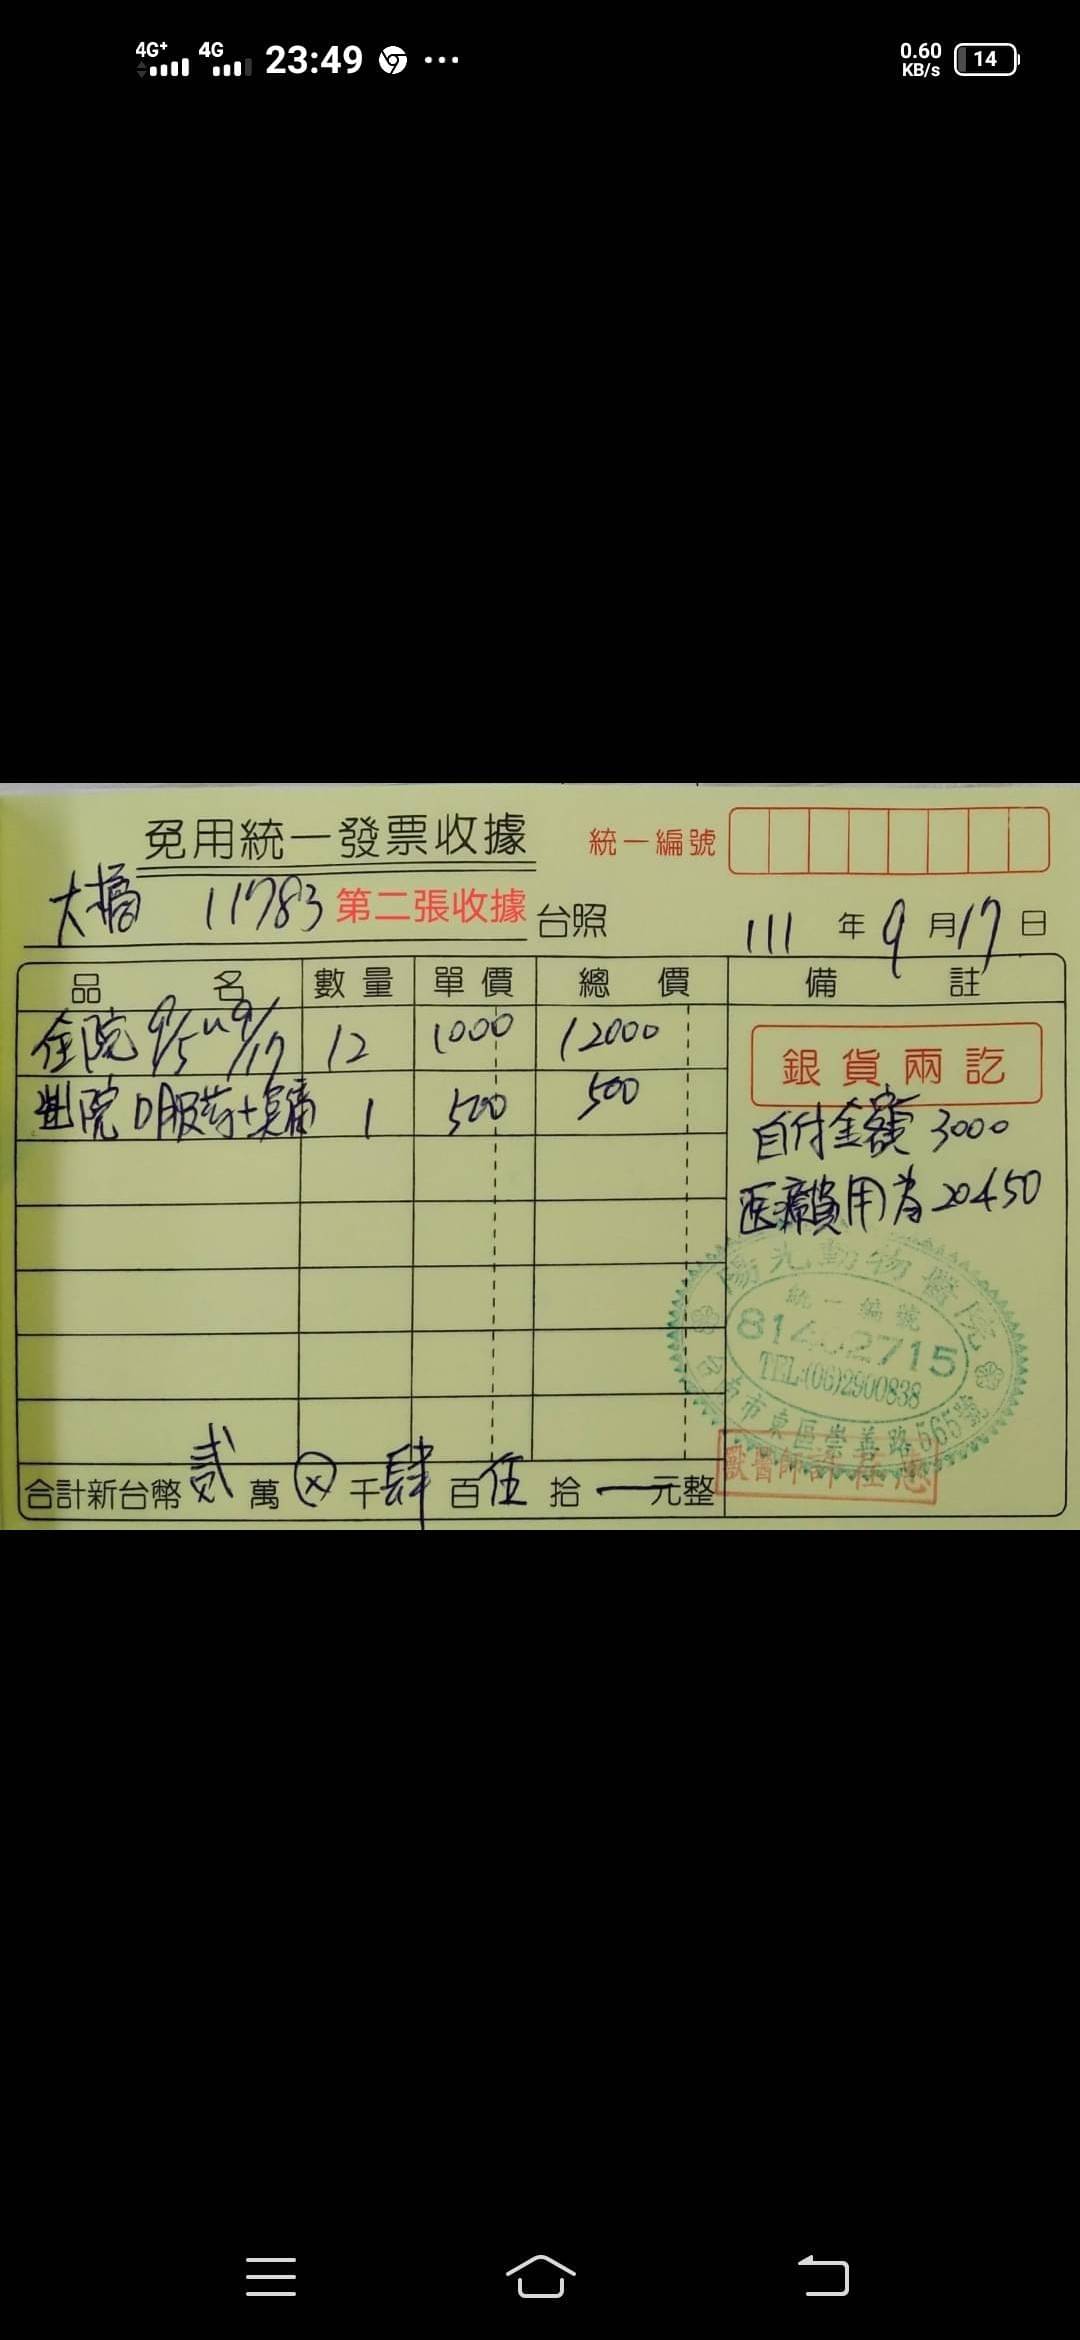 4G+ 4G 23:49 0.60 KB/s 14
免用統一發票收據
統一編號
大橘 11783 第二張收據 台照
111 年 9 月 17 日
品 名 數量 單價 總價 備註
住院 9/5~9/17 12 1000 12000
出院 口服药+ 1 500 500
銀貨兩訖
自付金額 3000
医療費用為 20450
陽光動物醫院
統一編號
2715
TEL:(06)2900838
台南市東區崇善路565號
獸醫師許
合計新台幣 貳 萬 ⊗ 千 肆 百 伍 拾 一 元整